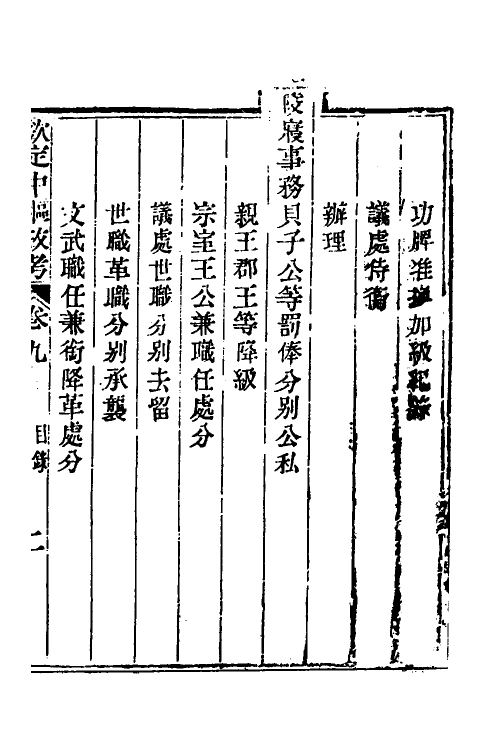 功牌准抵加級紀錄
議處侍衛
辦理
陵寢事務貝子公等罰俸分別公私
親王郡王等降級
宗室王公兼職任處分
議處世職分別去留
世職革職分別承襲
文武職任兼銜降革處分
欽定中樞政考 卷九 目錄 二